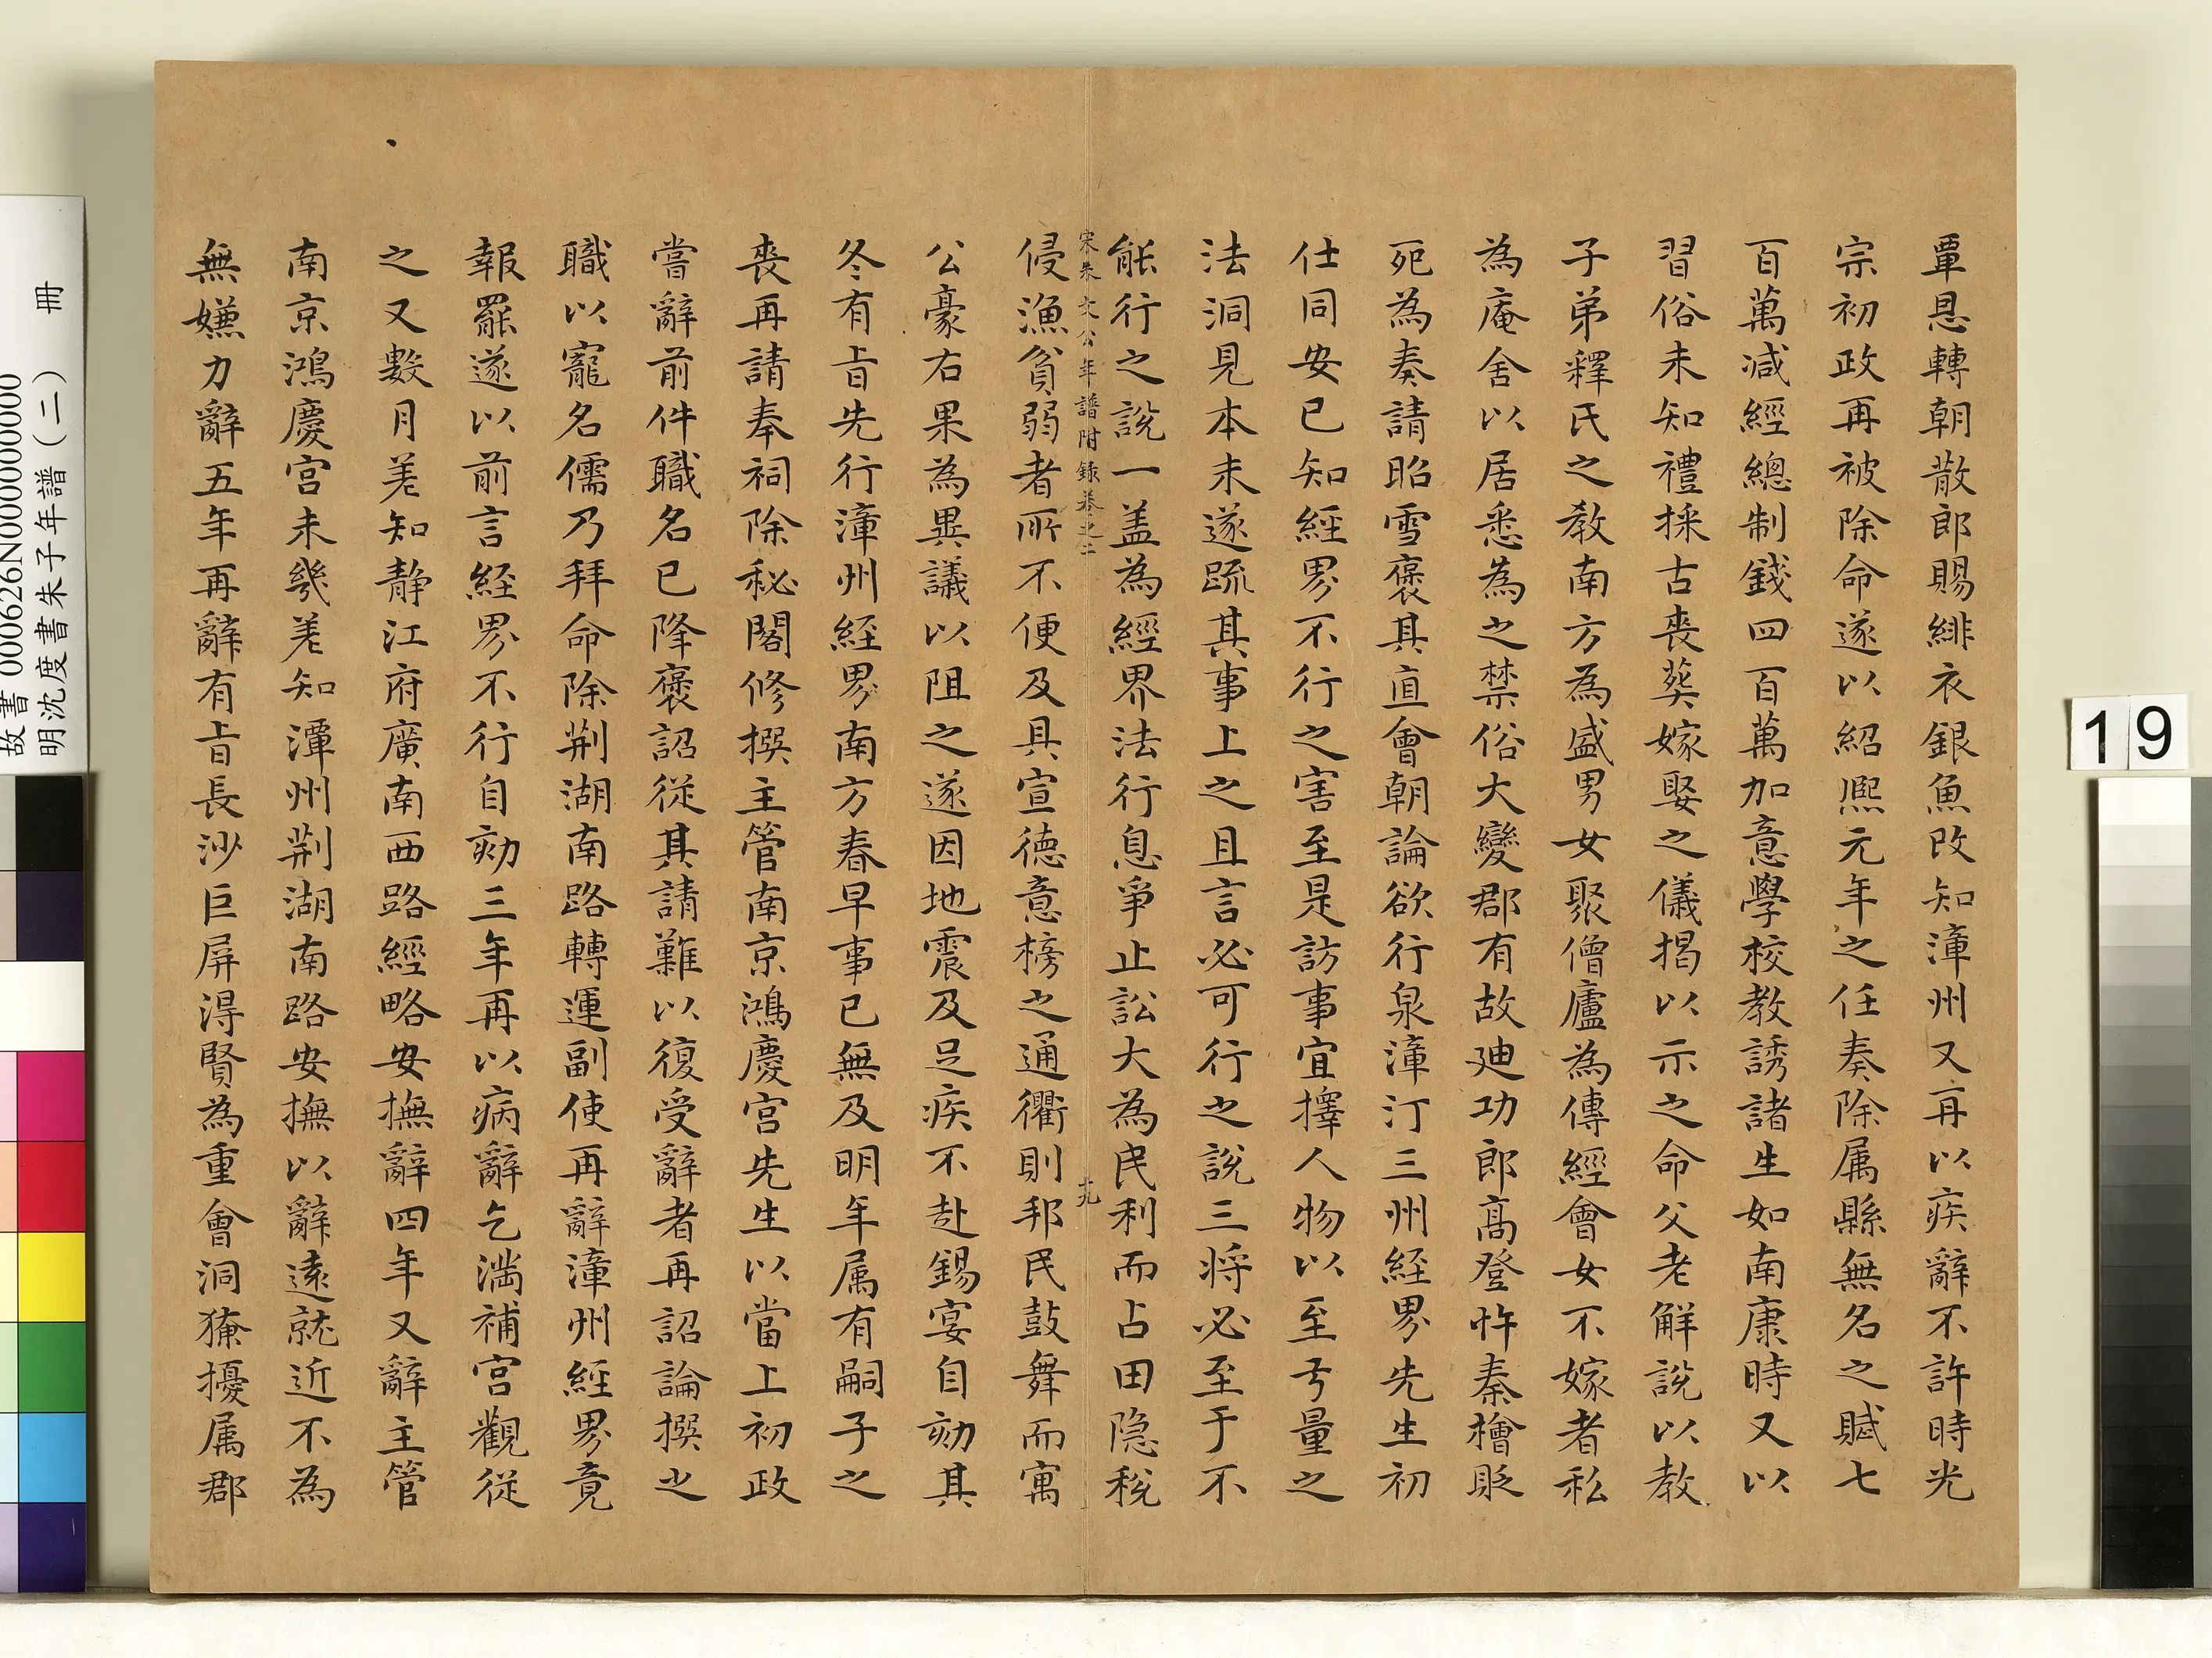 覃恩轉朝散郎賜緋衣銀魚改知漳州又再以疾辭不許時光
宗初政再被除命遂以紹熈元年之任奏除属縣無名之賦七
百萬减經總制錢四百萬加意學校教誘諸生如南康時又以
習俗未知禮採古喪葬嫁娶之儀揭以示之命父老解説以教
子弟釋氏之教南方為盛男女聚僧廬為傳經會女不嫁者私
為庵舍以居悉為之禁俗大變郡有故廸功郎髙登忤秦檜貶
死為奏請昭雪褒其直會朝論欲行泉漳汀三州經界先生初
仕同安已知經界不行之害至是訪事宜擇人物以至弓量之
法洞見本末遂疏其事上之且言必可行之說三将必至于不
能行之說一盖為經界法行息爭止訟大為民利而占田隐稅
侵漁貧弱者所不便及具宣徳意榜之通衢則邦民鼓舞而寓
公豪右果為異議以阻之遂因地震及足疾不赴錫宴自劾其
冬有旨先行漳州經界南方春早事已無及明年属有嗣子之
喪再請奉祠除秘閣修撰主管南京鴻慶宫先生以當上初政
嘗辭前件職名已降褒詔從其請難以復受辭者再詔論撰之
職以寵名儒乃拜命除荆湖南路轉運副使再辭漳州經界竟
報罷遂以前言經界不行自劾三年再以病辭乞满補宫觀從
之又數月差知静江府廣南西路經略安撫辭四年又辭主管
南京鴻慶宫未幾差知潭州荆湖南路安撫以辭遠就近不為
無嫌力辭五年再辭有旨長沙巨屏得賢為重會洞獠擾属郡
宋朱文公年譜附錄卷之二
十九
19
故書 000626N000000000
明沈度書朱子年譜（二） 冊